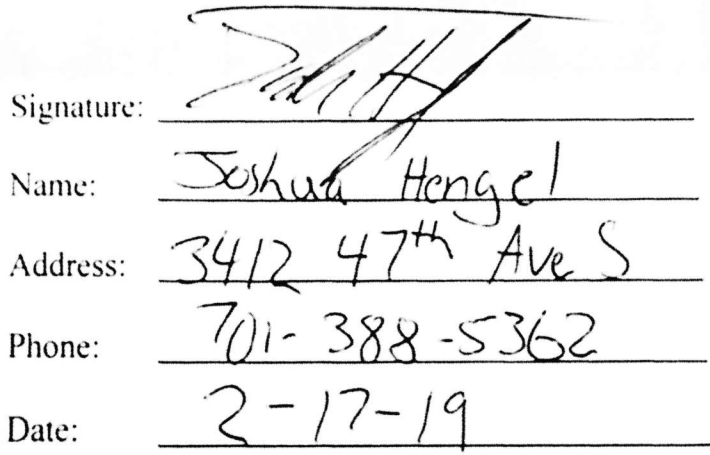 Signature:
Name: Joshua Hengel
Address: 3412 47th Ave S
Phone: 701-388-5362
Date: 2-17-19